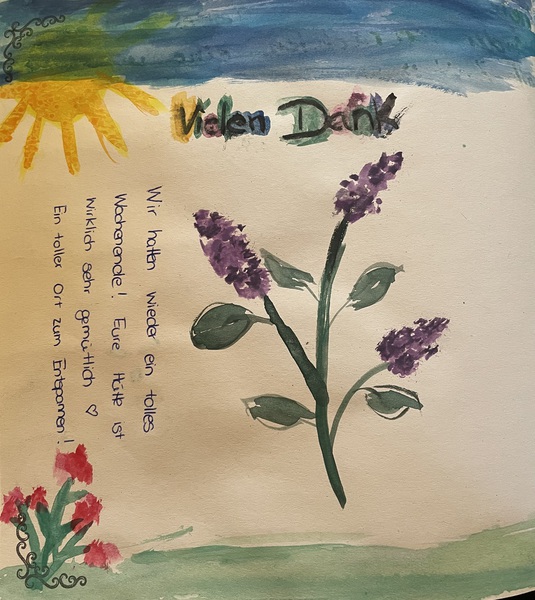 Vielen Dank
Wir hatten wieder ein tolles
Wochenende! Eure Hütte ist
Wirklich sehr gemütlich ♡
Ein toller Ort zum Entspannen!